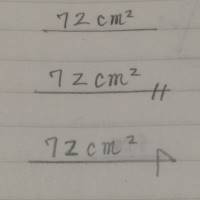 72 cm²
72 cm²
72 cm²